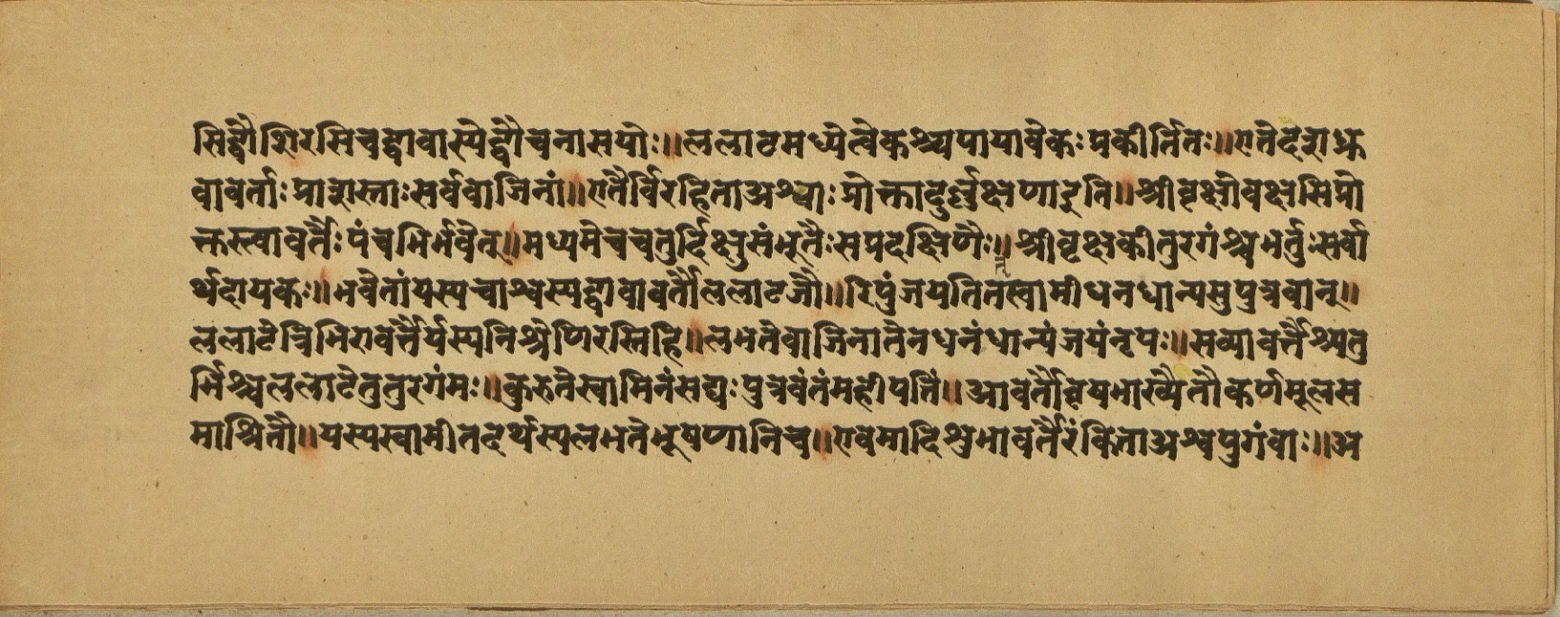 सिद्वौशिरसिचद्वावास्येद्वौचनासयोः॥ललाटमध्येत्वेकश्च्यपायावेकःप्रकीर्तितः॥एतेदशध्रु
वावर्ताःप्राशस्ताःसर्ववाजिनां॥एतैर्विरहिताअश्वाःप्रोक्तादुर्लक्षणाइति॥श्रीवृक्षीवक्षसिप्रो
क्तस्त्वावर्तैःपंचभिर्भवेत्॥मध्यमेचचतुर्दिक्षुसंभूतैःसप्रदक्षिणैः॥श्रीवृक्षकीतुरगंश्चभर्तुःसर्वा
र्थदायकः॥भवेतांयस्यचाश्वस्यद्वावावर्तौललाटजौ॥रिपुंजयतितस्वामीधनधान्यसुपुत्रवान्॥
ललाटेत्रिभिरावर्त्तैर्यस्यनिश्रेणिरस्तिहि॥लभतेवाजिनातेनधनंधान्यंजयंनृपः॥सव्यावर्त्तैश्च्यतु
र्भिश्चललाटेतुतुरगंमः॥कुरुतेस्वामिनंसद्यःपुत्रवंतंमहीपतिं॥आवर्तौविषयभाख्यैतौकर्णमूलस
माश्रितौ॥यस्यस्वामीतदर्थस्यलभतेभूषणानिच॥एवमादिशुभावर्तैरंकिताअश्वपुगंवाः॥अ